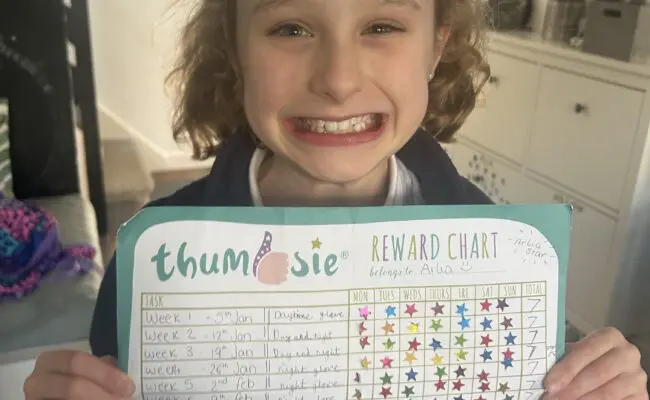 thumbsie®
REWARD CHART
belongs to Arlia
Arlia Star
TASK MON TUES WEDS THURS FRI SAT SUN TOTAL
Week 1 - 5th Jan Daytime glove 7
Week 2 - 12th Jan Day and night 7
Week 3 - 19th Jan Day and night 7
Week 4 - 26th Jan night glove 7
Week 5 2nd feb night glove 7
Week 6 9th feb